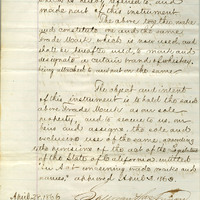 which is hereby referred to and
made part of this instrument
The above together make
and constitute one and the same
Trade Mark, which is now used and
shall be hereafter used, to mark and
designate a certain brand of whiskey
being attached to and put on the same
The object and intent
of this instrument is to hold the said
above Trade Mark as our sole
property, and to secure to us, our
heirs and assigns, the sole and
exclusive use of the same, according
to the provisions of the act of the Legislature
of the State of California entitled
an act concerning trade marks and
names, approved April 3, 1863.
April 28, 1866